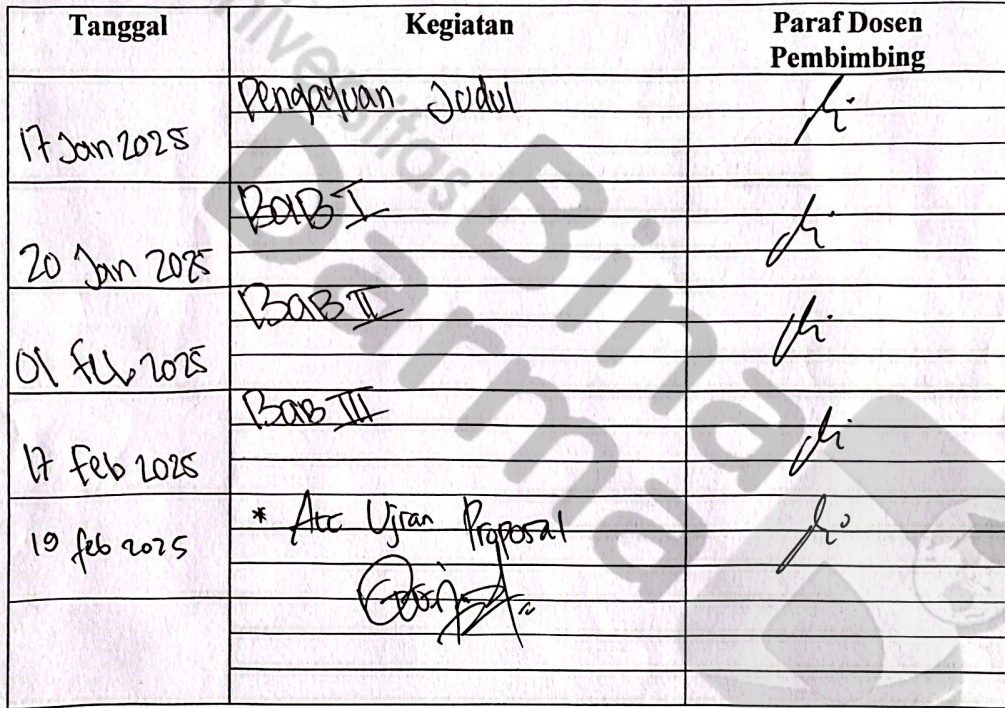 Tanggal Kegiatan Paraf Dosen
Pembimbing
Pengajuan Judul
17 Jan 2025
BAB I
20 Jan 2025
BAB II
01 Feb 2025
BAB III
17 Feb 2025
* Acc Ujian Proposal
19 feb 2025
Universitas
Bina
Darma